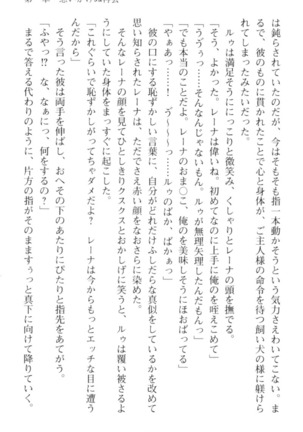 は鈍らされていたのだが、今はそもそも指一本動かそうという気力さえわいてこない。ま
るで、彼のものに貫かれたことで心と身体が、ご主人様の命令を待つ飼い犬の様に躾けら
れてしまったみたいだった。
ルゥは満足そうににっこりと微笑み、くしゃりとレーナの頭を撫でる。
「そう、よかった。レーナは偉いね。初めてなのに上手に俺のを咥えこめて」
「うぅぅっ……そんなんじゃないもん。ルゥが無理矢理したんだもん」
「でも本当のことだよ。レーナのおま○こ、俺のを美味しそうにほおばってる」
「やぁあっ……もう、ぅ〜〜〜っ……ルゥのばか、ばかぁっ」
彼の口にする恥ずかしい言葉に、自分がどれだけふしだらな真似をしているかを改めて
思い知らされたレーナは、ただでさえ赤い顔をなおさらに染めた。
そんなレーナの顔を見てひとしきりクスクスとおかしげに笑うと、ルゥは覆い被さるよ
うにしていた身体をまっすぐに起こした。
「これぐらいで恥ずかしがってちゃダメだよ？ レーナは今からもっとエッチな目に遭う
んだから」
そう言った彼は両手を伸ばし、おへその下のあたりにぴたりと指先をあてがう。
「ふやっ!? な、なぁに、何をするの？」
まるで答える代わりのように、片方の指がそのまますぅっと真下に向けて降りていく。